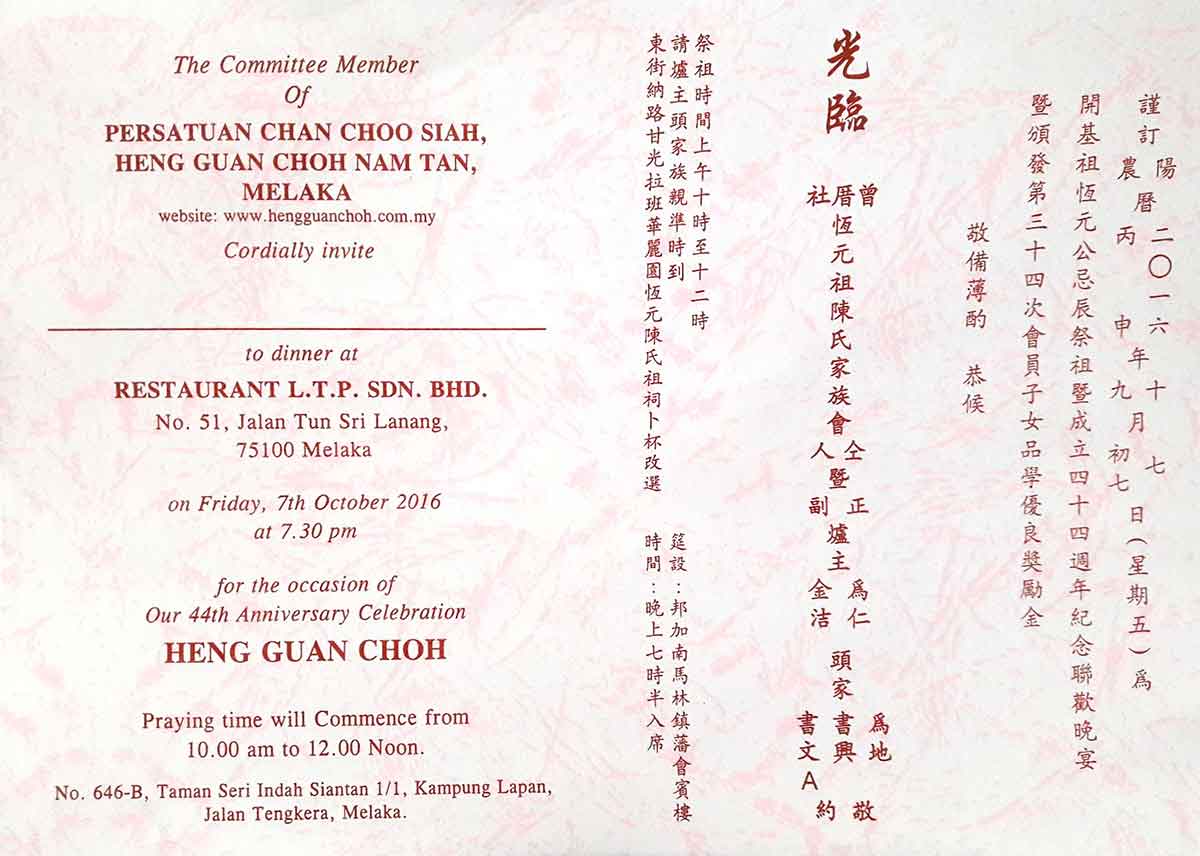 The Committee Member
Of
PERSATUAN CHAN CHOO SIAH,
HENG GUAN CHOH NAM TAN,
MELAKA
website: www.hengguanchoh.com.my
Cordially invite
to dinner at
RESTAURANT L.T.P. SDN. BHD.
No. 51, Jalan Tun Sri Lanang,
75100 Melaka
on Friday, 7th October 2016
at 7.30 pm
for the occasion of
Our 44th Anniversary Celebration
HENG GUAN CHOH
Praying time will Commence from
10.00 am to 12.00 Noon.
No. 646-B, Taman Seri Indah Siantan 1/1, Kampung Lapan,
Jalan Tengkera, Melaka.
謹訂 陽農 曆 二〇一六 丙申 年 十 九 月 七 初七 日(星期五)爲
開基祖恆元公忌辰祭祖暨成立四十四週年紀念聯歡晚宴
暨頒發第三十四次會員子女品學優良奬勵金
敬備薄酌 恭候
光臨
曾厝社恆元祖陳氏家族會仝人暨正副爐主 爲仁 金洁 頭家 爲地 書興 書文A 敬約
祭祖時間上午十時至十二時
請爐主頭家族親準時到
東街納路甘光拉班華麗園恆元陳氏祖祠卜杯改選
筵設:邦加南馬林鎮藩會賓樓
時間:晚上七時半入席